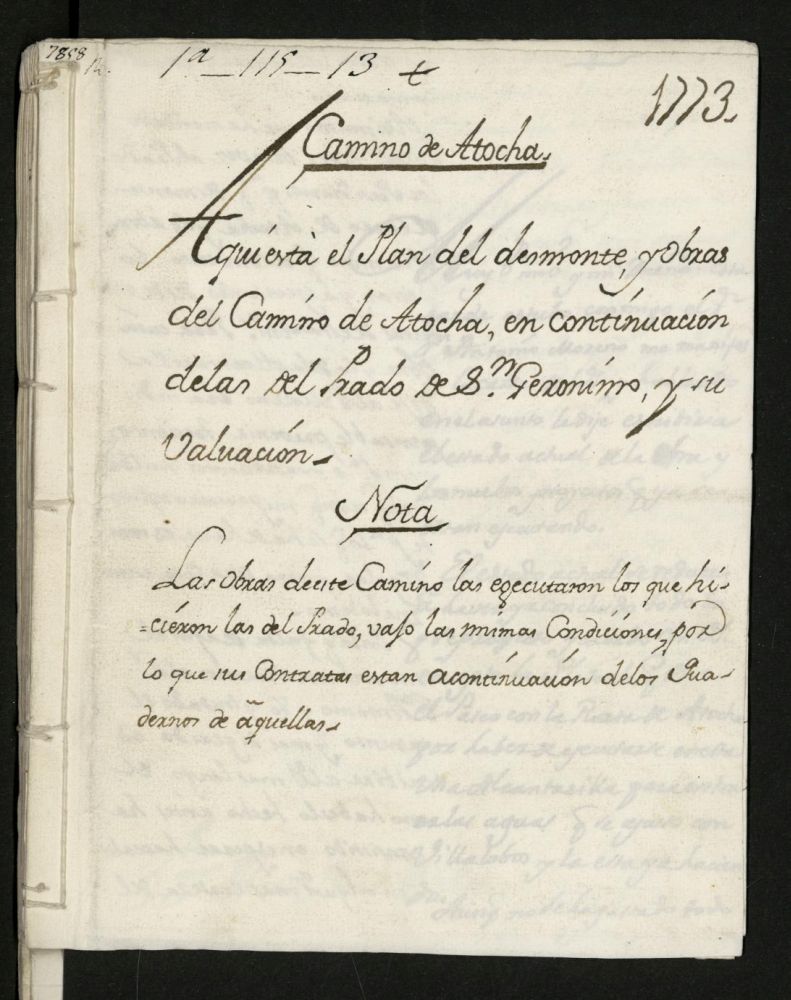 7858
1ª_115_13 +
1773.
Camino de Atocha.
Aqui està el Plan del desmonte, y Obras
del Camino de Atocha, en continuación
delas del Prado de Sn. Geronimo, y su
Valuación.
Nota
Las Obras deeste Camino las egecutaron los que hi-
=cieron las del Prado, vajo las mimas Condiciónes, por
lo que sus Contratas estan acontinuación delos Qua-
dernos de aquellas.